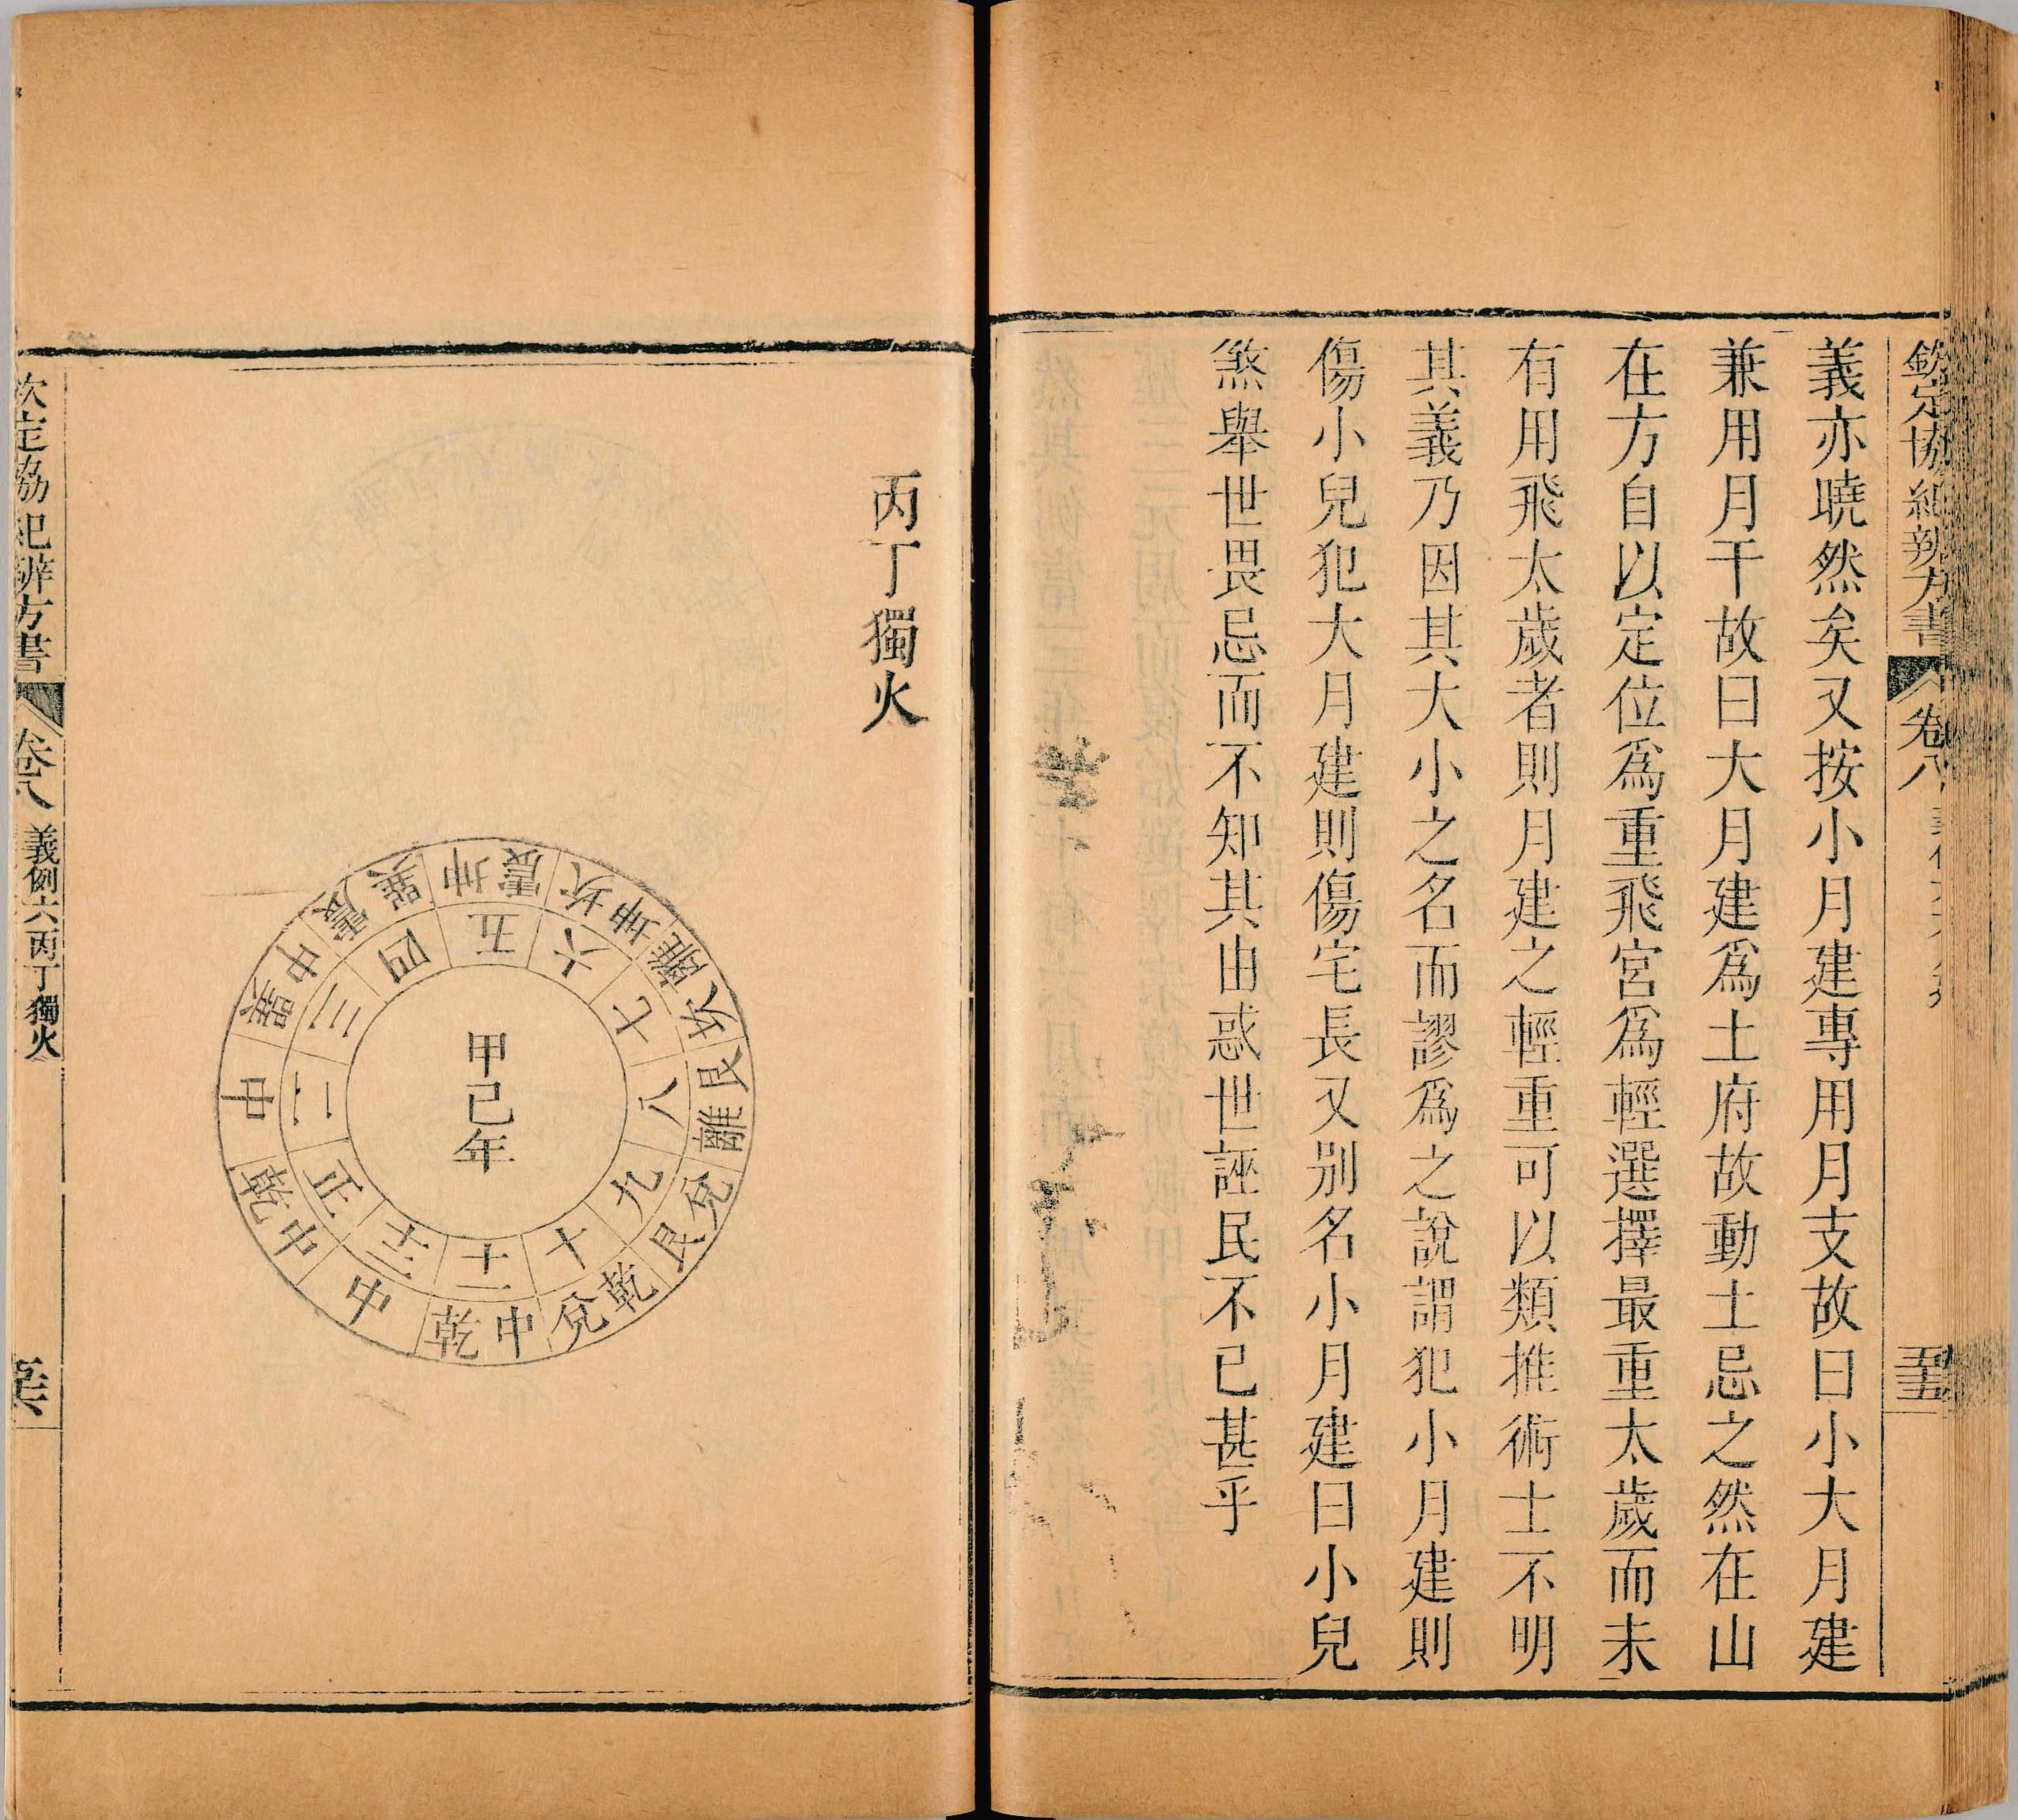 欽定協紀辨方書 卷八 五十五
義亦曉然矣又按小月建專用月支故曰小大月建
兼用月干故曰大月建為土府故動土忌之然在山
在方自以定位為重飛宮為輕選擇最重太歲而未
有用飛太歲者則月建之輕重可以類推術士不明
其義乃因其大小之名而謬為之說謂犯小月建則
傷小兒犯大月建則傷宅長又别名小月建曰小兒
煞舉世畏忌而不知其由惑世誣民不已甚乎
丙丁獨火
甲己年
正 二 三 四 五 六 七 八 九 十 十一 十二
乾中 中 巽中 震巽 坤震 坎坤 離坎 艮離 兌艮 乾兌 中乾 中
欽定協紀辨方書 卷八 義例六丙丁獨火